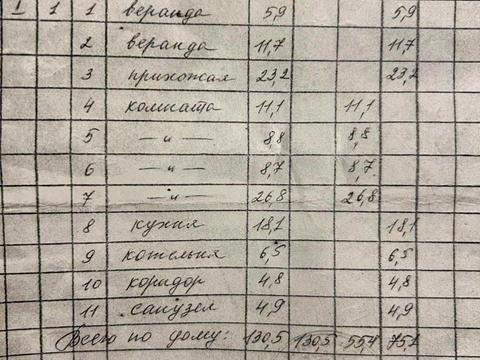 I 1 1 веранда 5,9 5,9
2 веранда 11,7 11,7
3 прихожая 23,2 23,2
4 комната 11,1 11,1
5 —"— 8,8 8,8
6 —"— 8,7 8,7
7 —"— 26,8 26,8
8 кухня 18,1 18,1
9 котельня 6,5 6,5
10 коридор 4,8 4,8
11 санузел 4,9 4,9
Всего по дому: 130,5 130,5 55,4 75,1